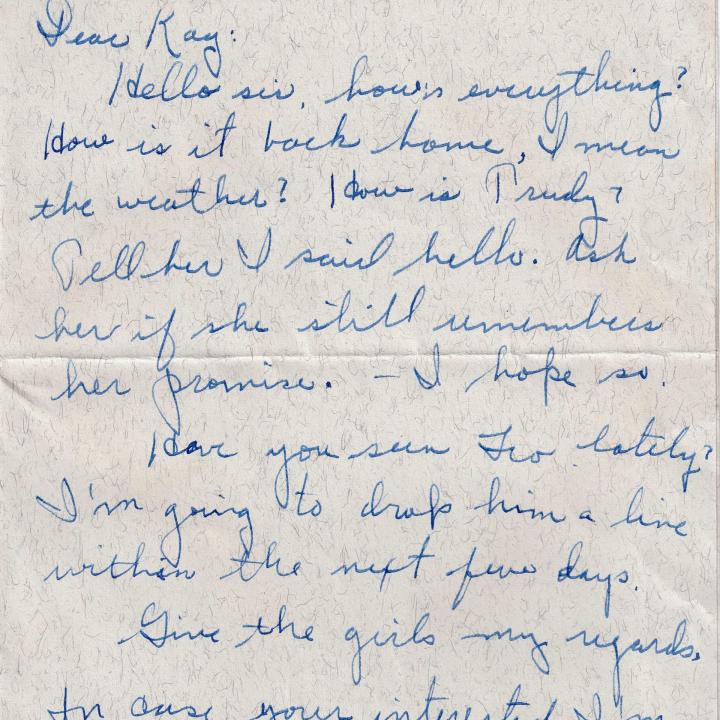 Dear Kay:
Hello sir, how's everything?
How is it back home, I mean
the weather? How is Trudy?
Tell her I said hello. Ask
her if she still remembers
her promise. – I hope so.
Have you seen Leo lately?
I'm going to drop him a line
within the next few days.
Give the girls my regards.
In case your interested I'm